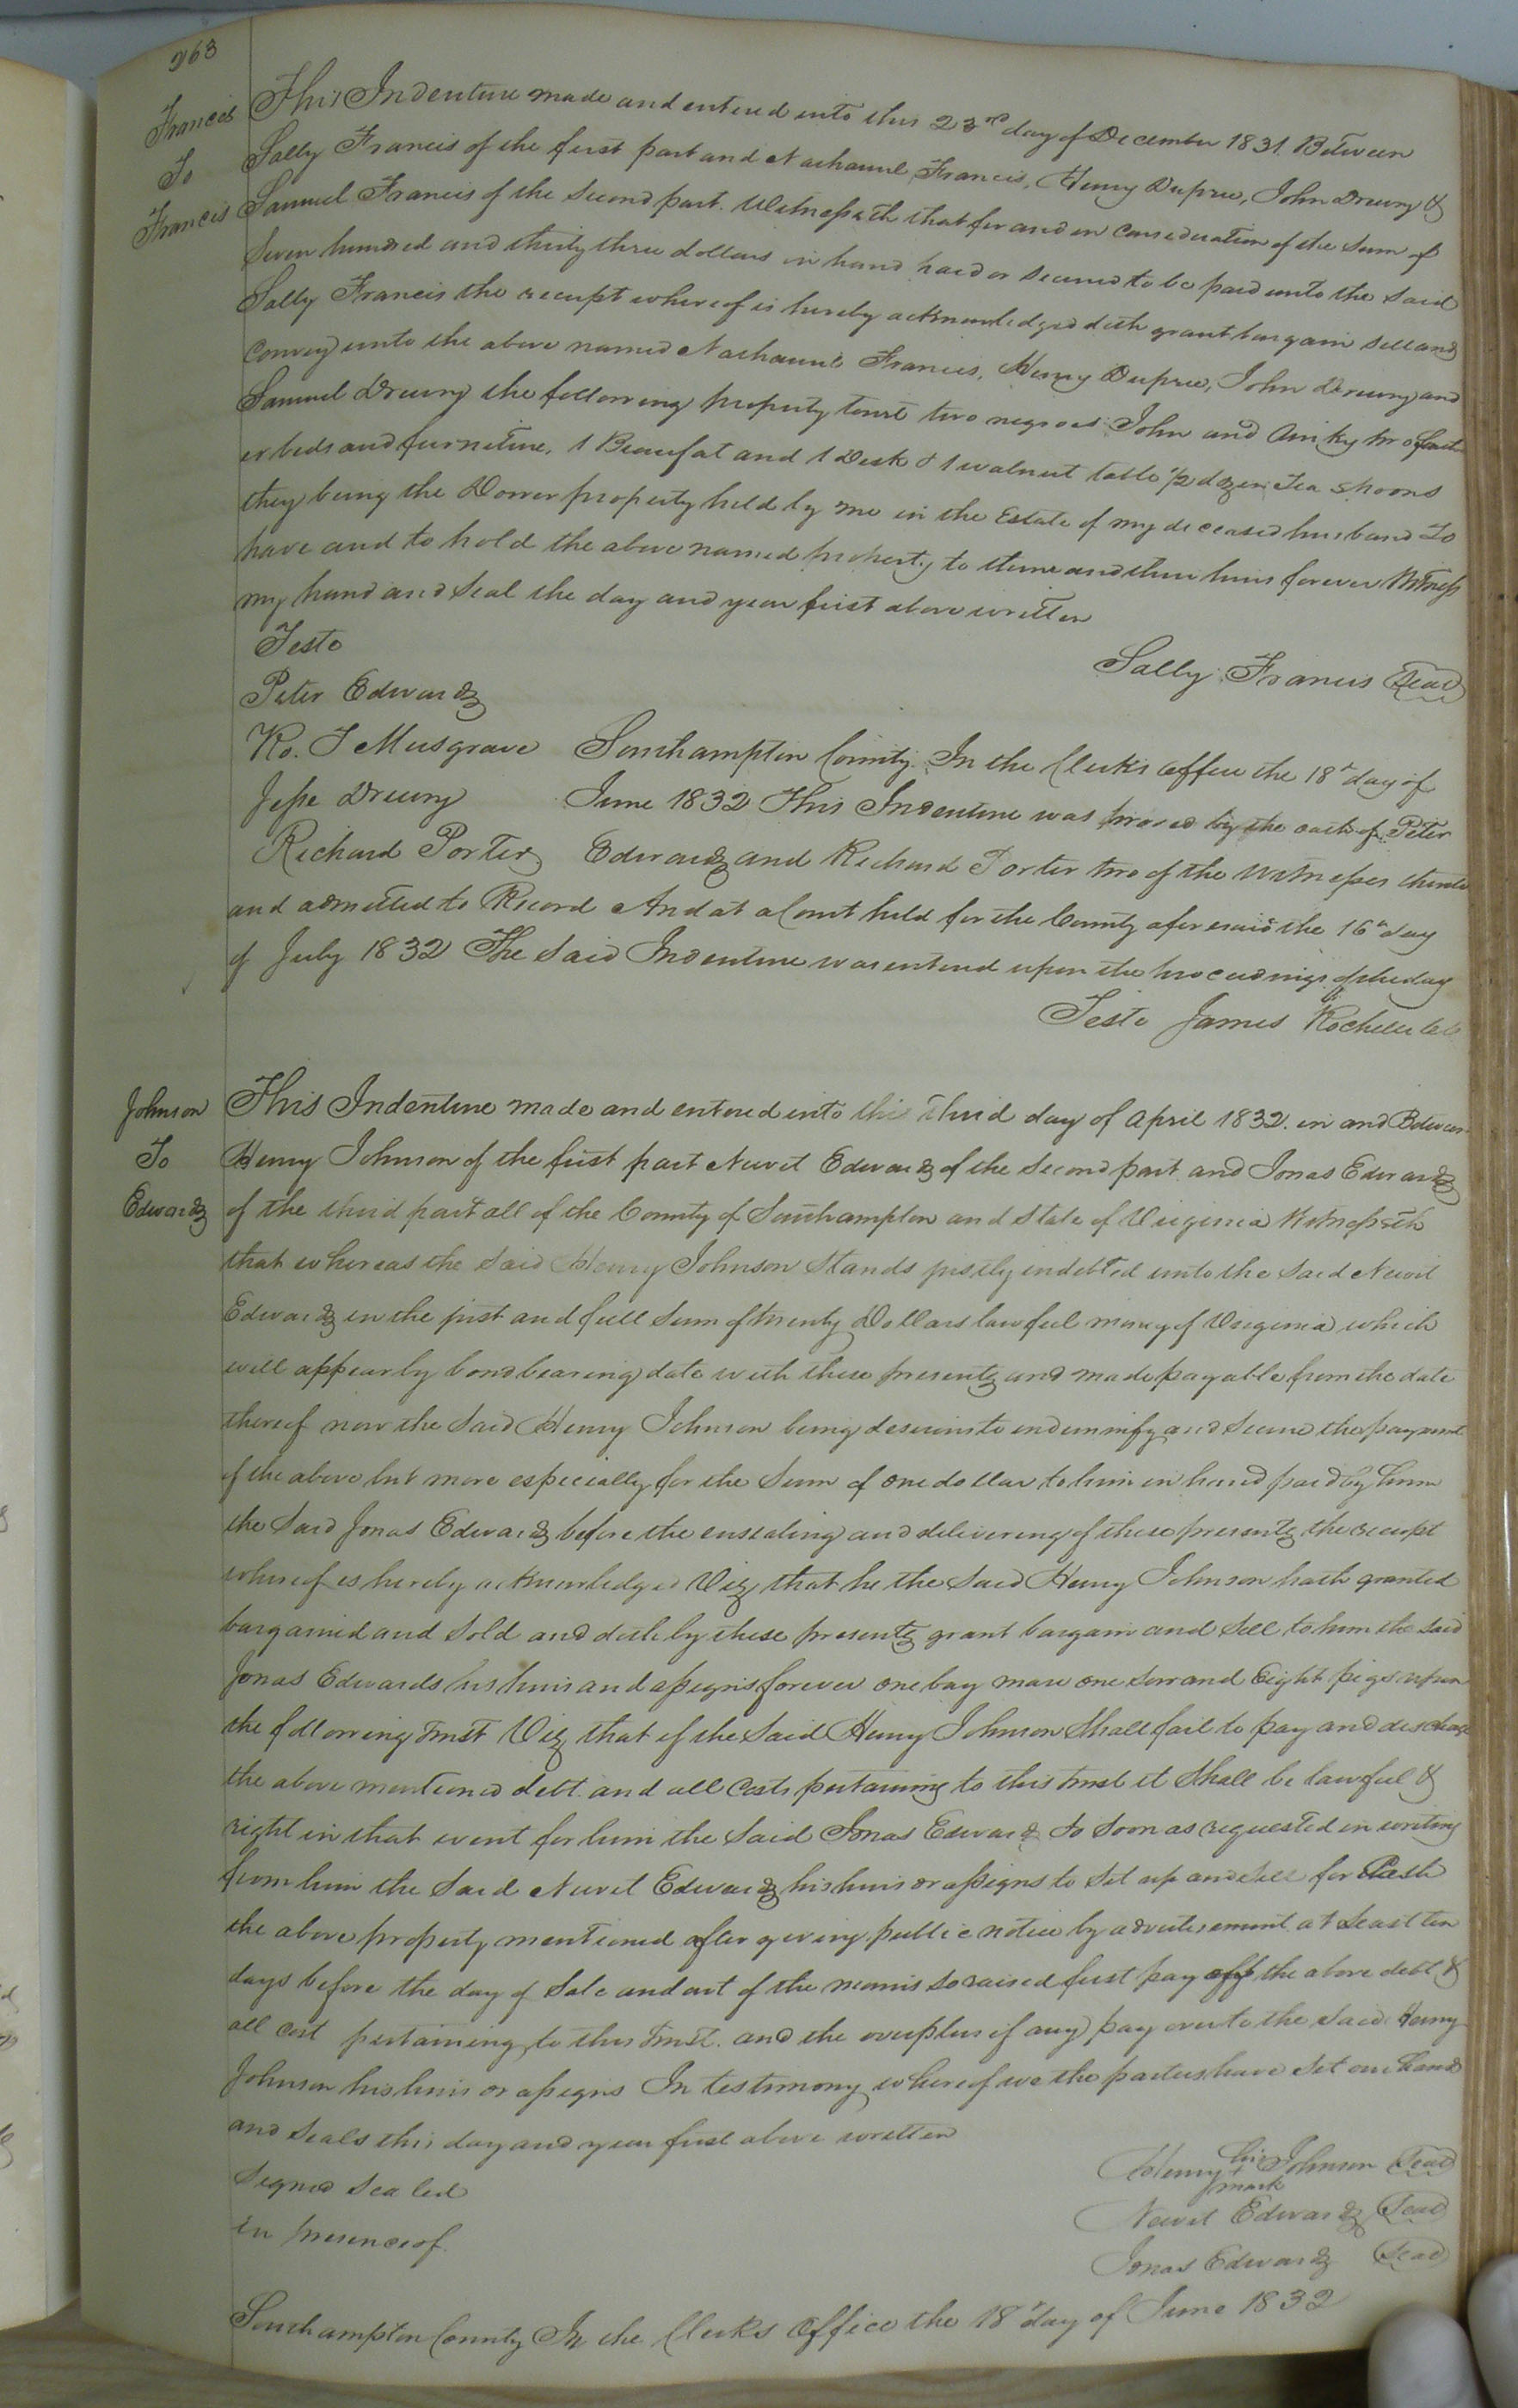 263
Francis
To
Francis
This Indenture made and entered into this 23rd day of December 1831. Between
Sally Francis of the first part and Nathaniel Francis, Henry Dupree, John Drewry &
Samuel Francis of the Second part. Witnesseth that for and in Consideration of the Sum of
Seven hundred and thirty three dollars in hand paid or secured to be paid unto the Said
Sally Francis the receipt whereof is hereby acknowledged doth grant bargain sell and
Convey unto the above named Nathaniel Francis, Henry Dupree, John Drewry and
Samuel Drewry the following property towit two negroes John and Amky two feath
er beds and furniture, 1 Beaufat and 1 Desk & 1 walnut table ½ dozen Tea spoons
they being the Dower property held by me in the Estate of my deceased husband To
have and to hold the above named property to them and their heirs forever Witness
my hand and Seal the day and year first above written
Teste
Sally Francis Seal
Peter Edwards
Ro. T Musgrave
Jesse Drewry
Richard Porter
Southampton County. In the Clerks office the 18th day of
June 1832 This Indenture was proved by the oath of Peter
Edwards and Richard Porter two of the Witnesses thereto
and admitted to Record And at a Court held for the County aforesaid the 16th day
of July 1832 The Said Indenture was entered upon the proceedings of the day
Teste James Rochelle
Johnson
To
Edwards
This Indenture made and entered into this third day of April 1832. in and Between
Henry Johnson of the first part Newit Edwards of the Second part and Jonas Edwards
of the third part all of the County of Southampton and State of Virginia Witnesseth
that whereas the Said Henry Johnson Stands justly indebted unto the Said Newit
Edwards in the just and full Sum of twenty Dollars lawful money of Virginia which
will appear by bond bearing date with these presents and made payable from the date
thereof now the Said Henry Johnson being desirous to indemnify and Secure the payment
of the above but more especially for the Sum of one dollar to him in hand paid by him
the Said Jonas Edwards before the ensealing and delivering of these presents the receipt
whereof is hereby acknowledged Viz that he the Said Henry Johnson hath granted
bargained and Sold and doth by these presents grant bargain and Sell to him the Said
Jonas Edwards his heirs and assigns forever one bay mare one Sow and Eight pigs upon
the following trust Viz that if the Said Henry Johnson Shall fail to pay and discharge
the above mentioned debt. and all Costs pertaining to this trust it Shall be lawful &
right in that event for him the Said Jonas Edwards So Soon as requested in writing
from him the Said Newit Edwards his heirs or assigns to Set up and Sell for Cash
the above property mentioned after giving public notice by advertisement at Least ten
days before the day of Sale and out of the means So raised first pay off the above debt &
all Cost pertaining to this trust. and the overplus if any pay over to the Said Henry
Johnson his heirs or assigns In testimony whereof we the parties have Set our hands
and Seals this day and year first above written
Signed Sealed
in presence of
Henry his Johnson Seal
+
mark
Newit Edwards Seal
Jonas Edwards Seal
Southampton County In the Clerks Office the 18th day of June 1832